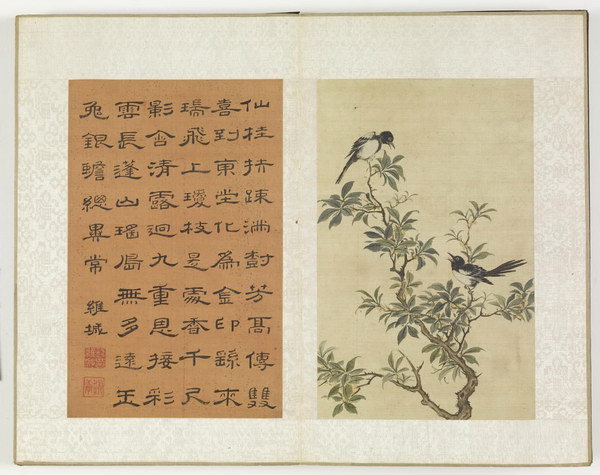 仙桂扶疎滿尌芳高傳雙
喜到東堂化為金印繇來
瑞飛上瓊枝是處香千尺
影含清露迥九重恩接彩
雲長蓬山瑤島無多遠玉
兔銀蟾總異常
維城